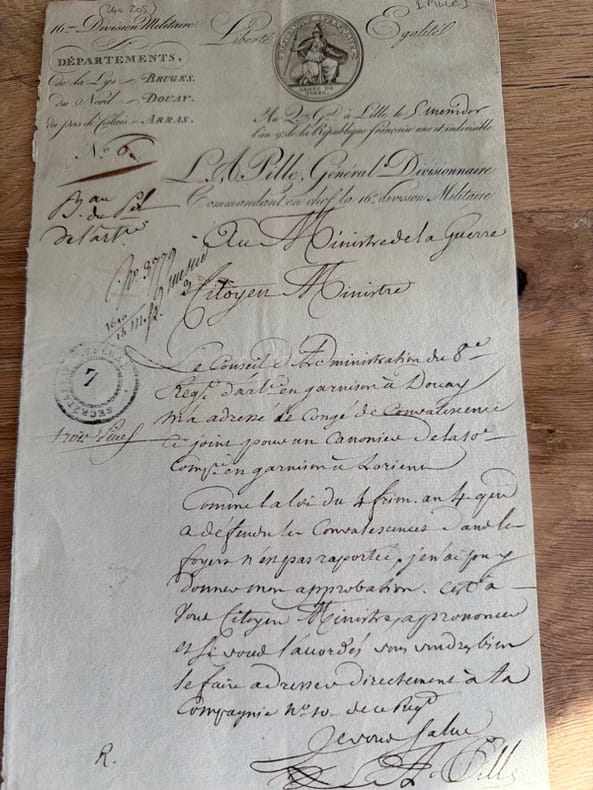 16.me Division Militaire.
Liberté
Egalité
DÉPARTEMENTS,
De la Lys - BRUGES.
du Nord - DOUAY.
du pas de Calais - ARRAS.
N.o 6.
Au Q.er G.al à Lille le 5 messidor
l'an 9.e de la République française une et indivisible.
L. A. Pille, Général Divisionnaire
Commandant en chef la 16.e division Militaire.
B.au
de l'art.ie
Au Ministre de la Guerre
N.o 3779
Citoyen Ministre
7
SECRÉTARIAT
Le Conseil d'Administration du 8.e
Reg.t d'art.ie en garnison à Douay
m'a adressé le Congé de Convalescence
Ci joint pour un Canonier de la 10.e
Comp.e en garnison à Lorient
Comme la loi du 4 frim. an 4 qui
a défendu les Convalescences dans les
foyers n'est pas raportée, je n'ai pu y
donner mon approbation. C'est à
Vous Citoyen Ministre, a prononcer
et si vous l'accordés vous voudrez bien
le faire adresser directement à la
Compagnie n.o 10 de ce Reg.t
Je vous Salue
L. A. Pille
R.